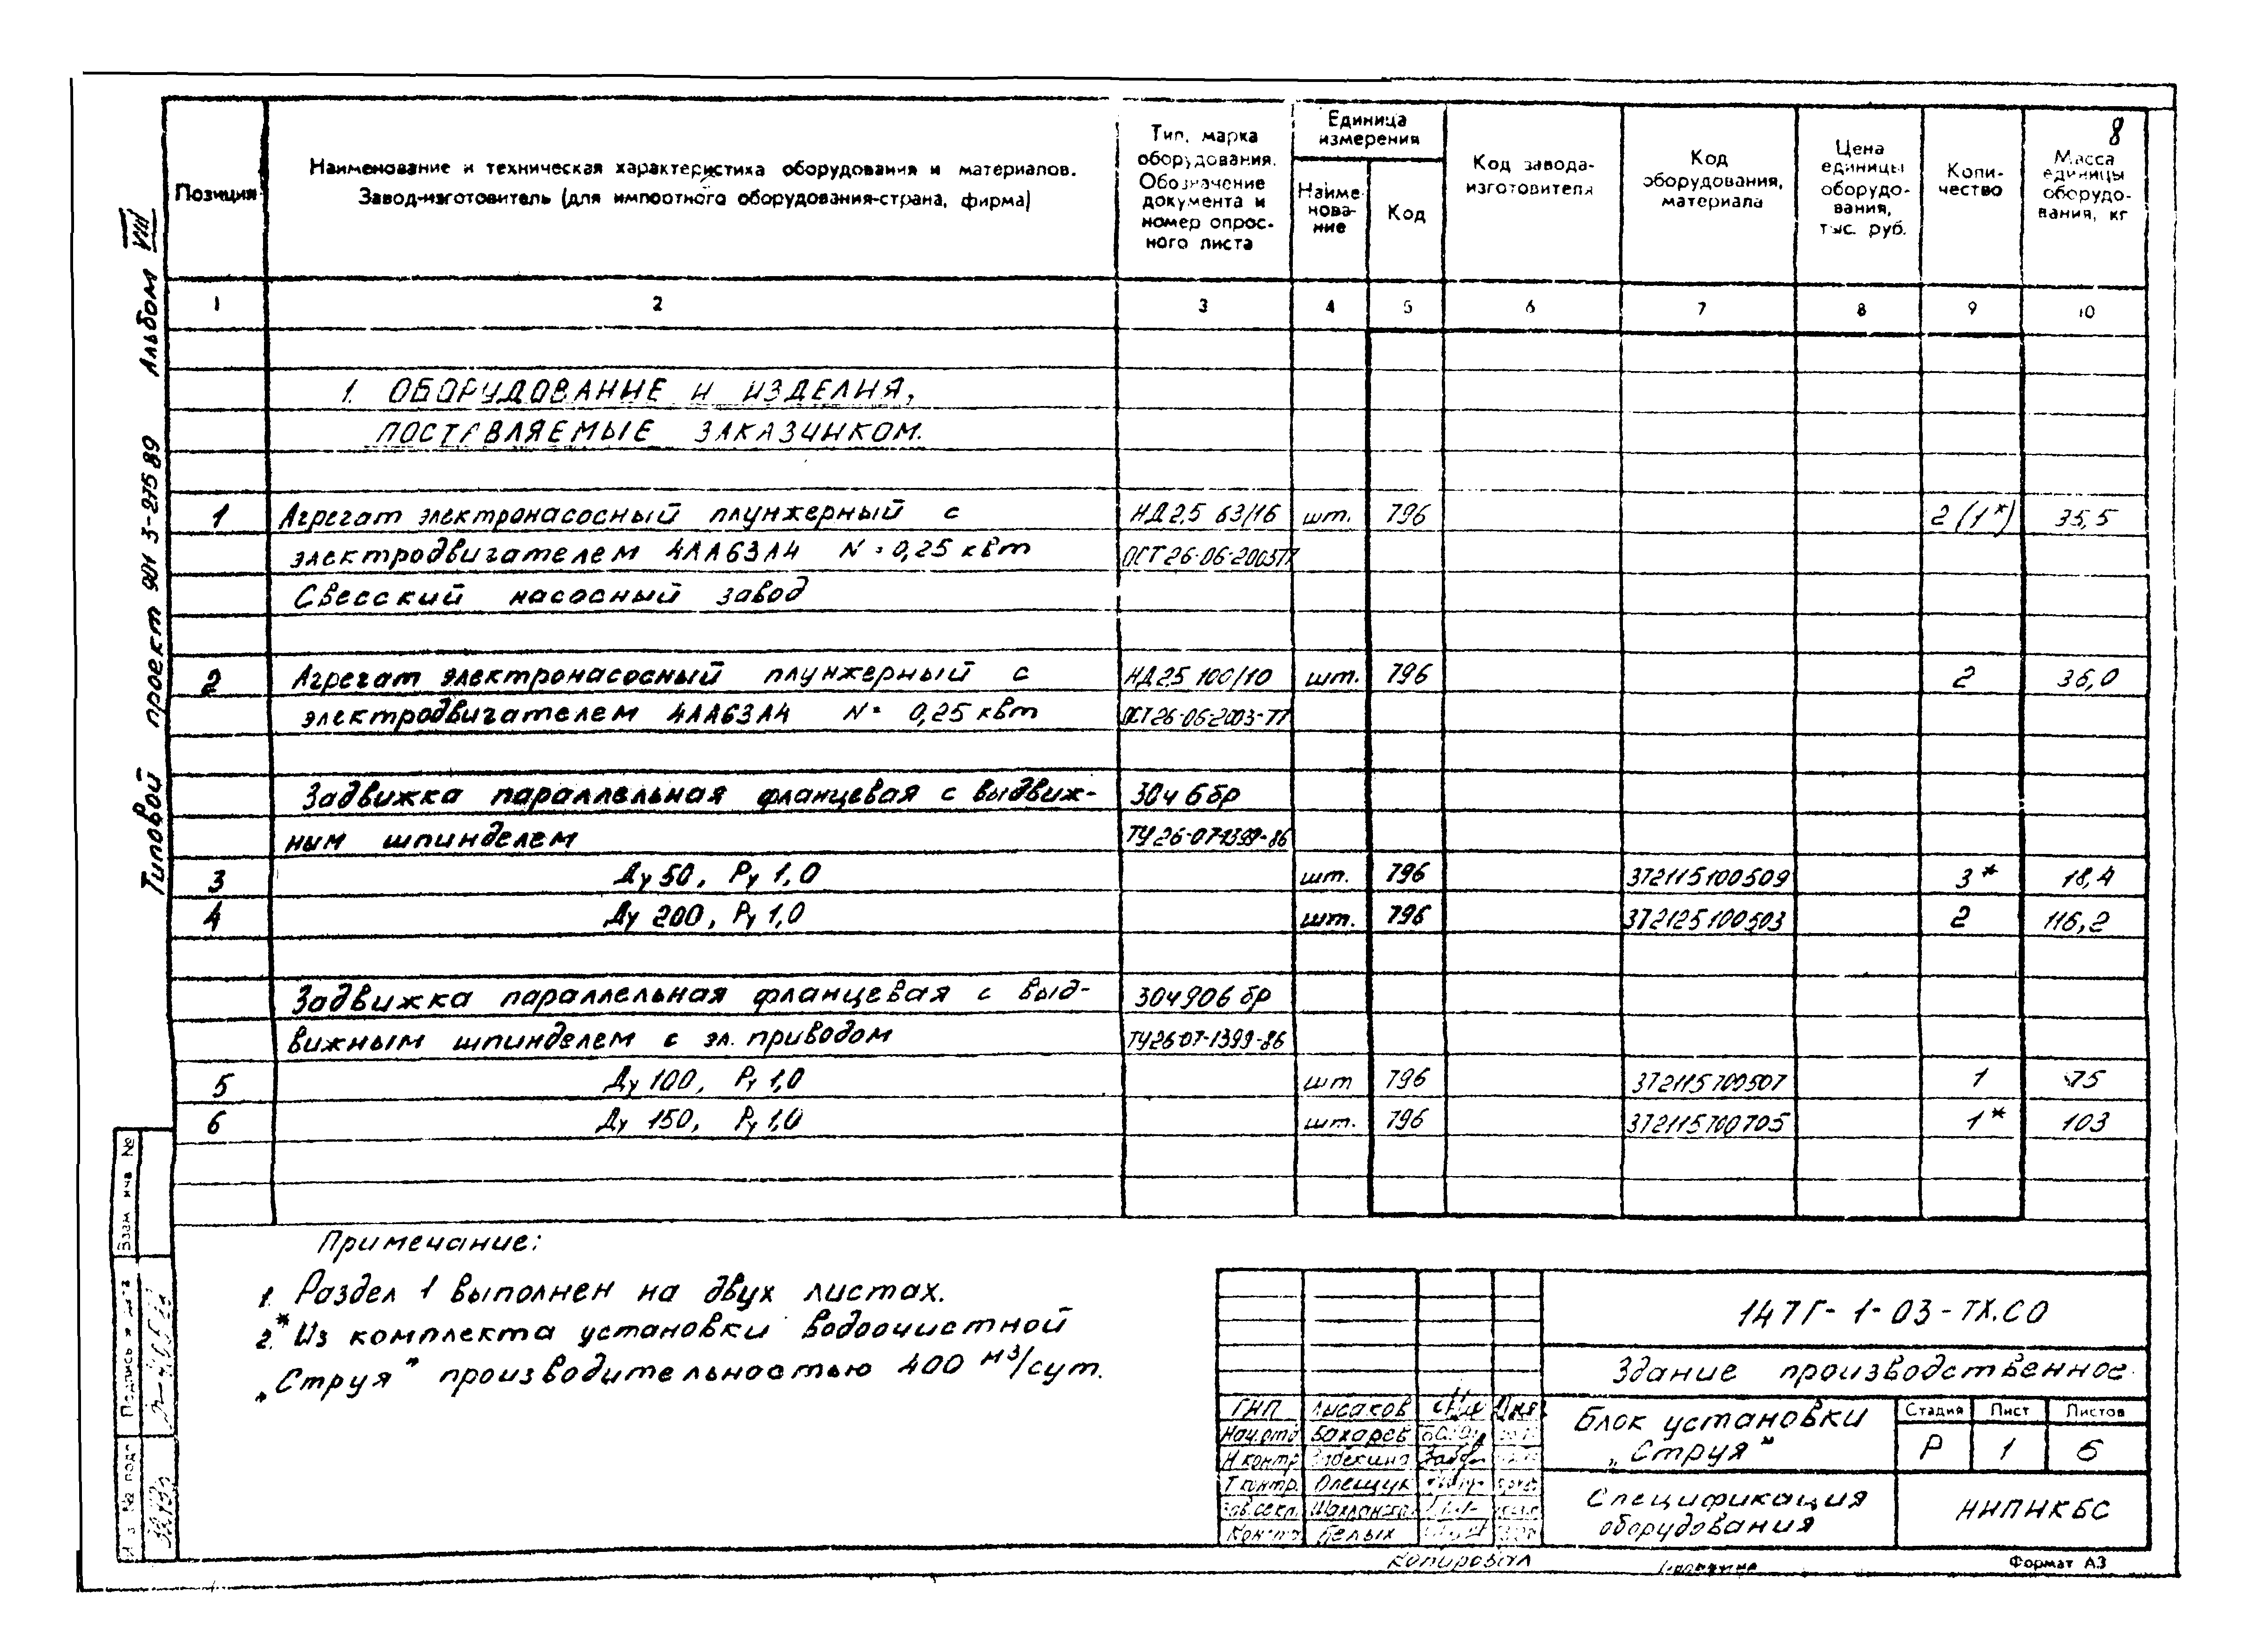 8
Позиция
Наименование и техническая характеристика оборудования и материалов.
Завод-изготовитель (для импортного оборудования-страна, фирма)
Тип, марка
оборудования.
Обозначение
документа и
номер опрос-
ного листа
Единица
измерения
Наиме-
нова-
ние
Код
Код завода-
изготовителя
Код
оборудования,
материала
Цена
единицы
оборудо-
вания,
тыс. руб.
Коли-
чество
Масса
единицы
оборудо-
вания, кг
1 2 3 4 5 6 7 8 9 10
1. ОБОРУДОВАНИЕ И ИЗДЕЛИЯ,
ПОСТАВЛЯЕМЫЕ ЗАКАЗЧИКОМ.
1 Агрегат электронасосный плунжерный с НД 2,5 63/16 шт. 796 2 (1*) 35,5
электродвигателем 4АА63А4 N = 0,25 квт ОСТ 26-06-2003-77
Свесский насосный завод
2 Агрегат электронасосный плунжерный с НД 2,5 100/10 шт. 796 2 36,0
электродвигателем 4АА63А4 N = 0,25 квт ОСТ 26-06-2003-77
Задвижка параллельная фланцевая с выдвиж- 30ч 6 бр
ным шпинделем ТУ 26-07-1399-86
3 Ду 50, Ру 1,0 шт. 796 372115100509 3* 18,4
4 Ду 200, Ру 1,0 шт. 796 372125100503 2 116,2
Задвижка параллельная фланцевая с выд- 30ч906 бр
вижным шпинделем с эл. приводом ТУ 26-07-1399-86
5 Ду 100, Ру 1,0 шт 796 372115700507 1 75
6 Ду 150, Ру 1,0 шт. 796 372115700705 1* 103
Примечание:
1. Раздел 1 выполнен на двух листах.
2.* Из комплекта установки водоочистной
„Струя" производительностью 400 м3/сут.
147Г-1-03-ТХ.СО
Здание производственное
ГИП Лысаков
Нач.отд Бахарев
Н контр
Т контр. Олещук
Зав.сект.
Констр Белых
Блок установки
„Струя"
Стадия Лист Листов
Р 1 6
Спецификация
оборудования
НИПИКБС
Копировал
Формат А3
Типовой проект 901 3-275 89 Альбом VIII
Взам инв №
Подпись и дата
№ подл